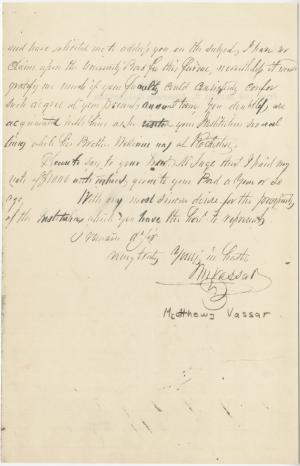 and have solicited me to address you on the subject, I have no
claims upon the University Board for this favour, nevertheless it would
gratify me much if your faculty could consistently confer
such a degree at your annual
acquainted with him as he your Institution several
times, while his Brother William was at Rochester.
Please to say to your Mr Sage that I paid my
note of $1000 with interest, given to your Board a year or so
ago,
With my most sincere desire for the prosperity
of the Institution which you have the honor to represent
I remain
very truly Yours in haste
M Vassar
Matthew Vassar